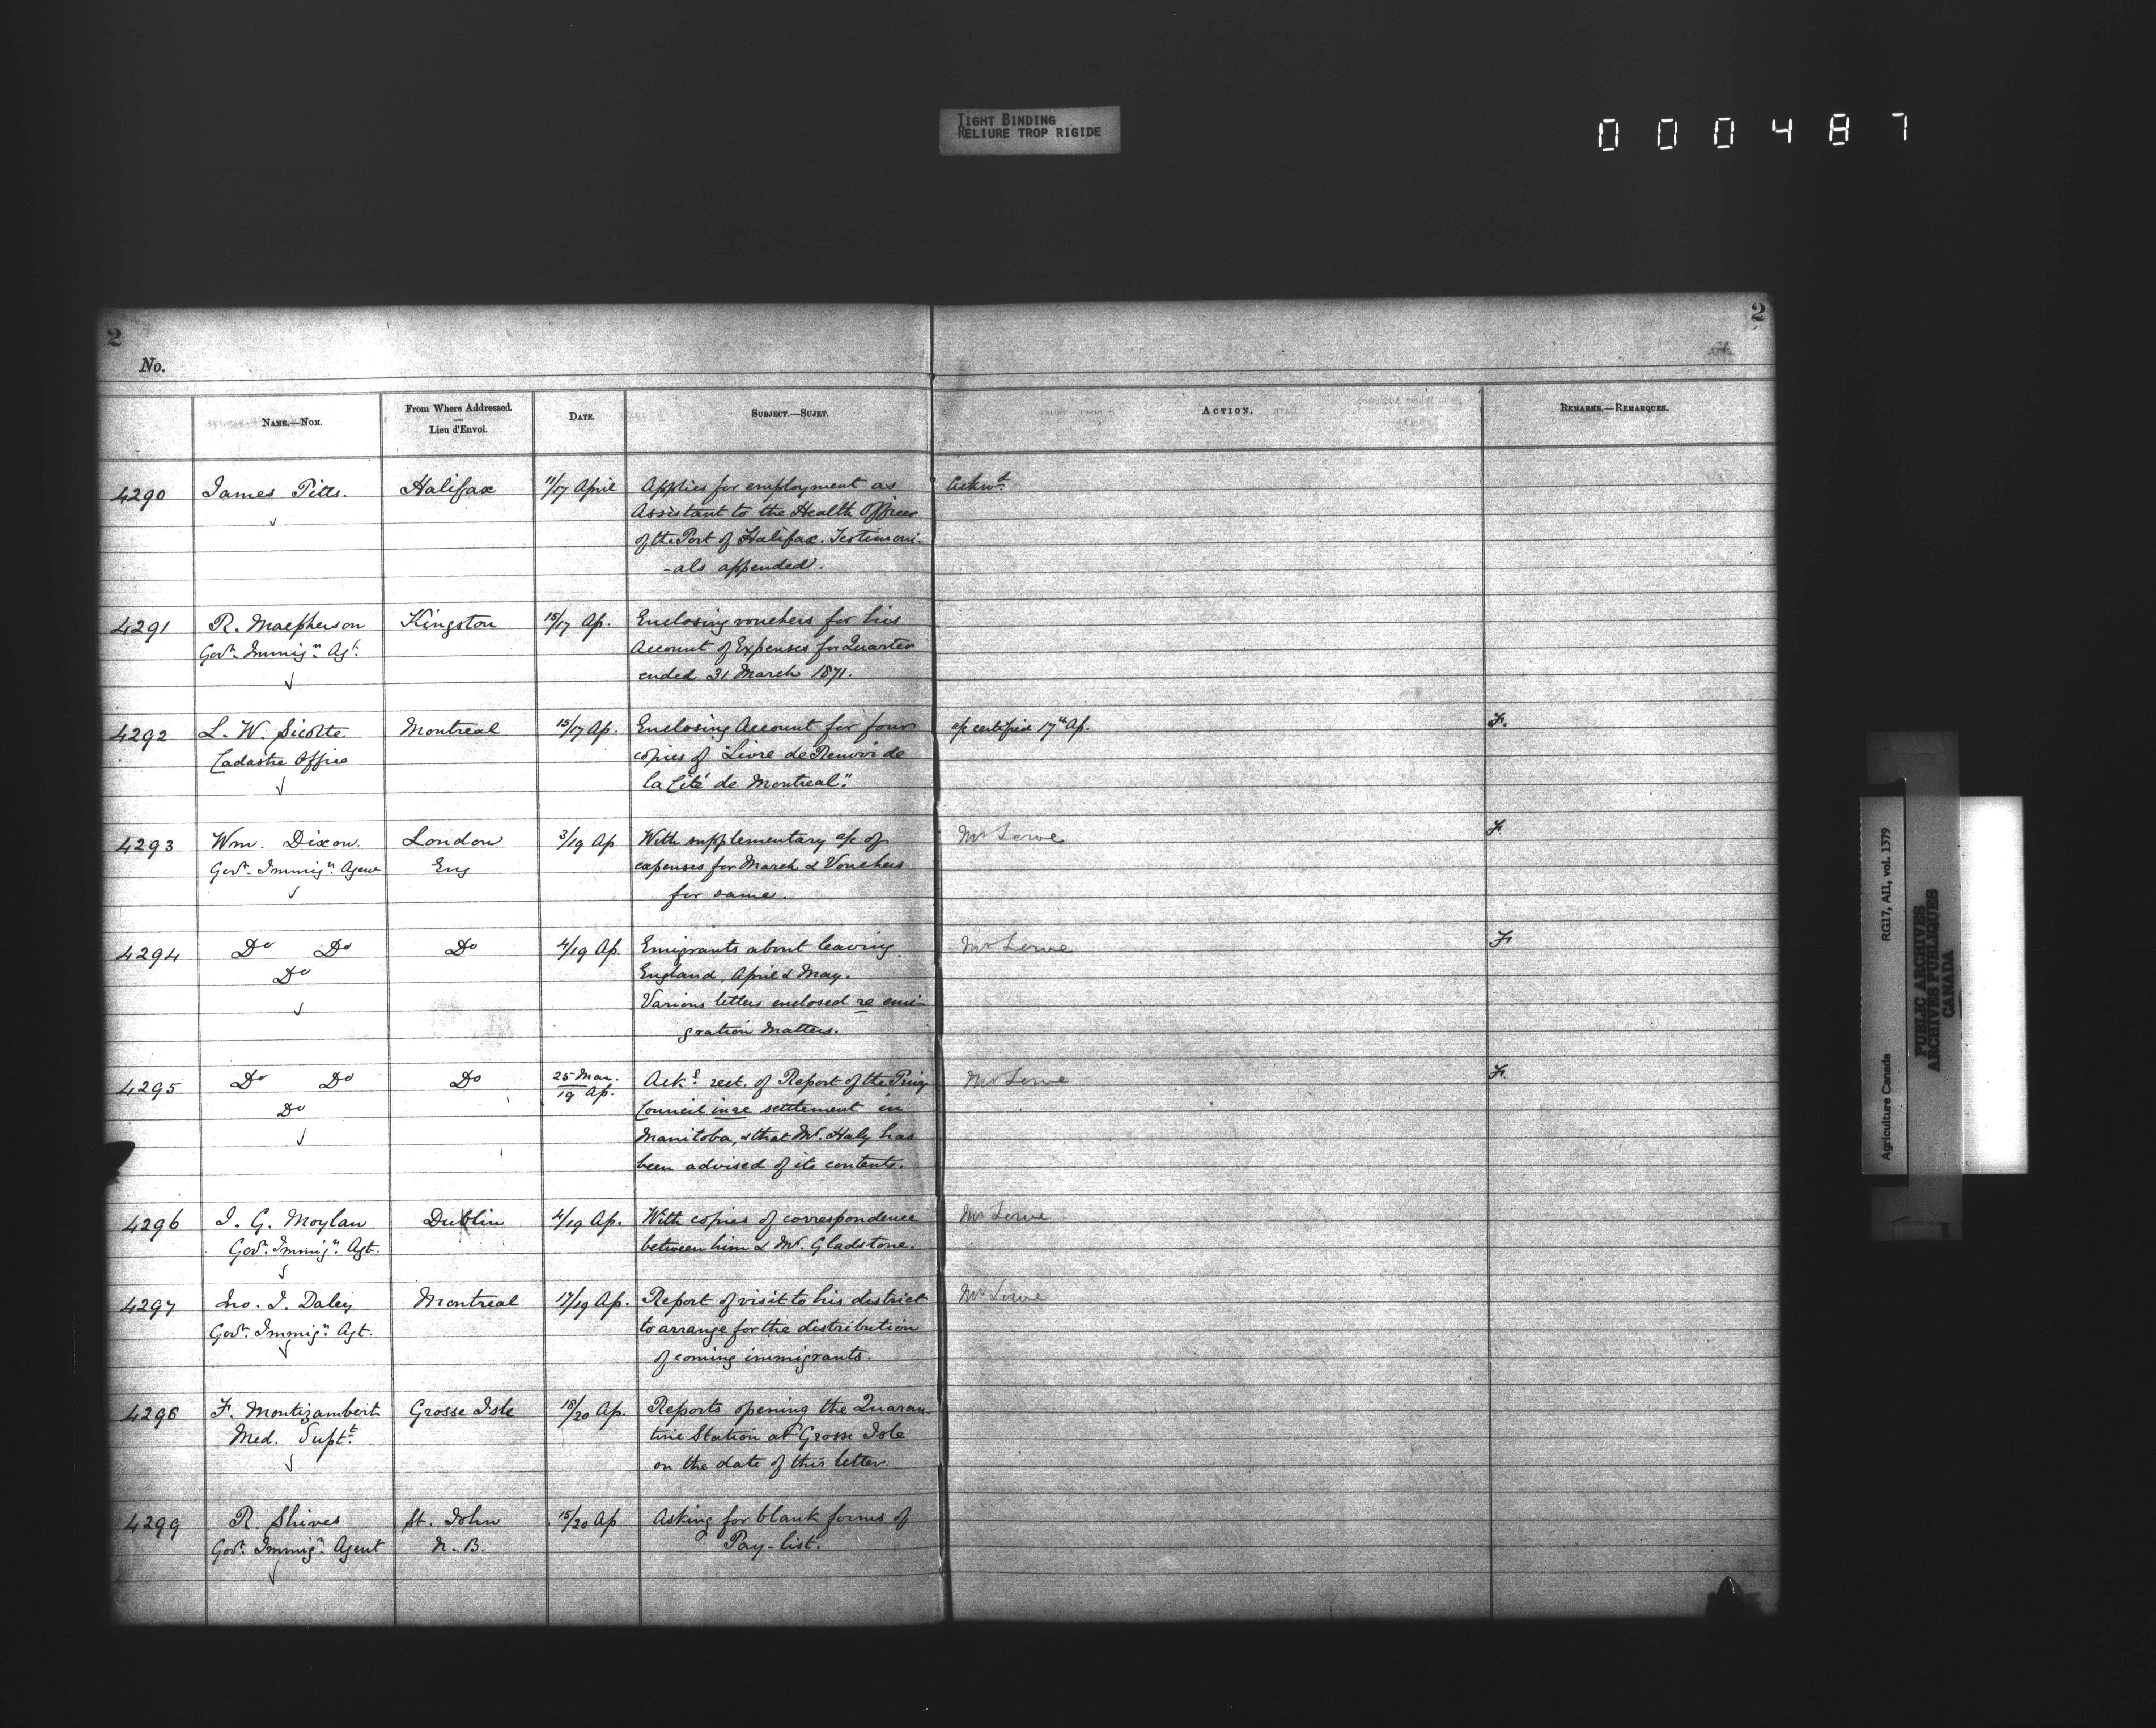 TIGHT BINDING
RELIURE TROP RIGIDE
000487
2
2
No.
NAME.—NOM.
From Where Addressed.
—
Lieu d'Envoi.
DATE.
SUBJECT.—SUJET.
ACTION.
REMARKS.—REMARQUES.
4290 James Pitts. Halifax 11/17 April Applies for employment as Ackwd.
Assistant to the Health Officer
of the Port of Halifax. Testimoni-
-als appended.
4291 R. Macpherson Kingston 15/17 Ap. Enclosing vouchers for his
Govt. Immign. Agt. Account of Expenses for Quarter
ended 31 March 1871.
4292 L. W. Sicotte Montreal 15/17 Ap. Enclosing Account for four a/c certified 17th Ap. F.
Cadastre Office copies of "Livre de Renvoi de
la Cité de Montreal."
4293 Wm. Dixon. London 3/19 Ap With supplementary a/c of Mr Lowe F.
Govt. Immign. Agent Eng expenses for March & Vouchers
for same.
4294 Do Do Do 4/19 Ap. Emigrants about leaving Mr Lowe F.
Do England, April & May.
Various letters enclosed re emi-
gration matters.
4295 Do Do Do 25 Mar./19 Ap. Acks. rect. of Report of the Privy Mr Lowe F.
Do Council in re settlement in
Manitoba, & that Mr. Haly has
been advised of its contents.
4296 J. G. Moylan Dublin 4/19 Ap. With copies of correspondence Mr Lowe
Govt. Immign. Agt. between him & Mr. Gladstone.
4297 Jno. J. Daley Montreal 17/19 Ap. Report of visit to his district Mr Lowe
Govt. Immign. Agt. to arrange for the distribution
of coming immigrants.
4298 F. Montizambert Grosse Isle 18/20 Ap. Reports opening the Quaran-
Med. Supt. tine Station at Grosse Isle
on the date of this letter.
4299 R. Shives St. John 15/20 Ap Asking for blank forms of
Govt. Immign. Agent N. B. Pay-list.
Agriculture Canada RG17, AII, vol. 1379
PUBLIC ARCHIVES
ARCHIVES PUBLIQUES
CANADA